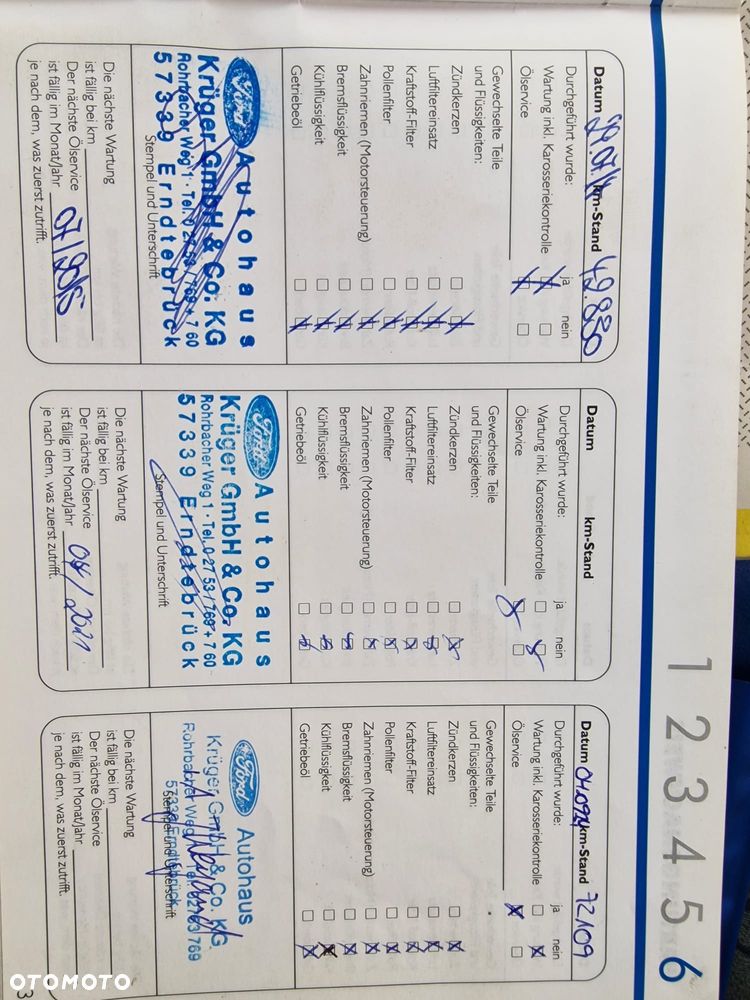 1 2 3 4 5 6
Datum km-Stand 49.830
Durchgeführt wurde: ja nein
Wartung inkl. Karosseriekontrolle
Ölservice
Gewechselte Teile
und Flüssigkeiten:
Zündkerzen
Luftfiltereinsatz
Kraftstoff-Filter
Pollenfilter
Zahnriemen (Motorsteuerung)
Bremsflüssigkeit
Kühlflüssigkeit
Getriebeöl
Ford Autohaus
Krüger GmbH & Co. KG
Rohrbacher Weg 1 · Tel. 0 27 53 / 769 + 7 60
57339 Erndtebrück
Stempel und Unterschrift
Die nächste Wartung
ist fällig bei km
Der nächste Ölservice
ist fällig im Monat/Jahr 07/2015
je nach dem, was zuerst zutrifft.
Datum km-Stand
Durchgeführt wurde: ja nein
Wartung inkl. Karosseriekontrolle
Ölservice
Gewechselte Teile
und Flüssigkeiten:
Zündkerzen
Luftfiltereinsatz
Kraftstoff-Filter
Pollenfilter
Zahnriemen (Motorsteuerung)
Bremsflüssigkeit
Kühlflüssigkeit
Getriebeöl
Ford Autohaus
Krüger GmbH & Co. KG
Rohrbacher Weg 1 · Tel. 0 27 53 / 769 + 7 60
57339 Erndtebrück
Stempel und Unterschrift
Die nächste Wartung
ist fällig bei km
Der nächste Ölservice
ist fällig im Monat/Jahr
je nach dem, was zuerst zutrifft.
Datum km-Stand 72109
Durchgeführt wurde: ja nein
Wartung inkl. Karosseriekontrolle
Ölservice
Gewechselte Teile
und Flüssigkeiten:
Zündkerzen
Luftfiltereinsatz
Kraftstoff-Filter
Pollenfilter
Zahnriemen (Motorsteuerung)
Bremsflüssigkeit
Kühlflüssigkeit
Getriebeöl
Ford Autohaus
Krüger GmbH & Co. KG
Rohrbacher Weg 1 Tel. 02753 769
57339 Erndtebrück
Stempel und Unterschrift
Die nächste Wartung
ist fällig bei km
Der nächste Ölservice
ist fällig im Monat/Jahr
je nach dem, was zuerst zutrifft.
OTOMOTO